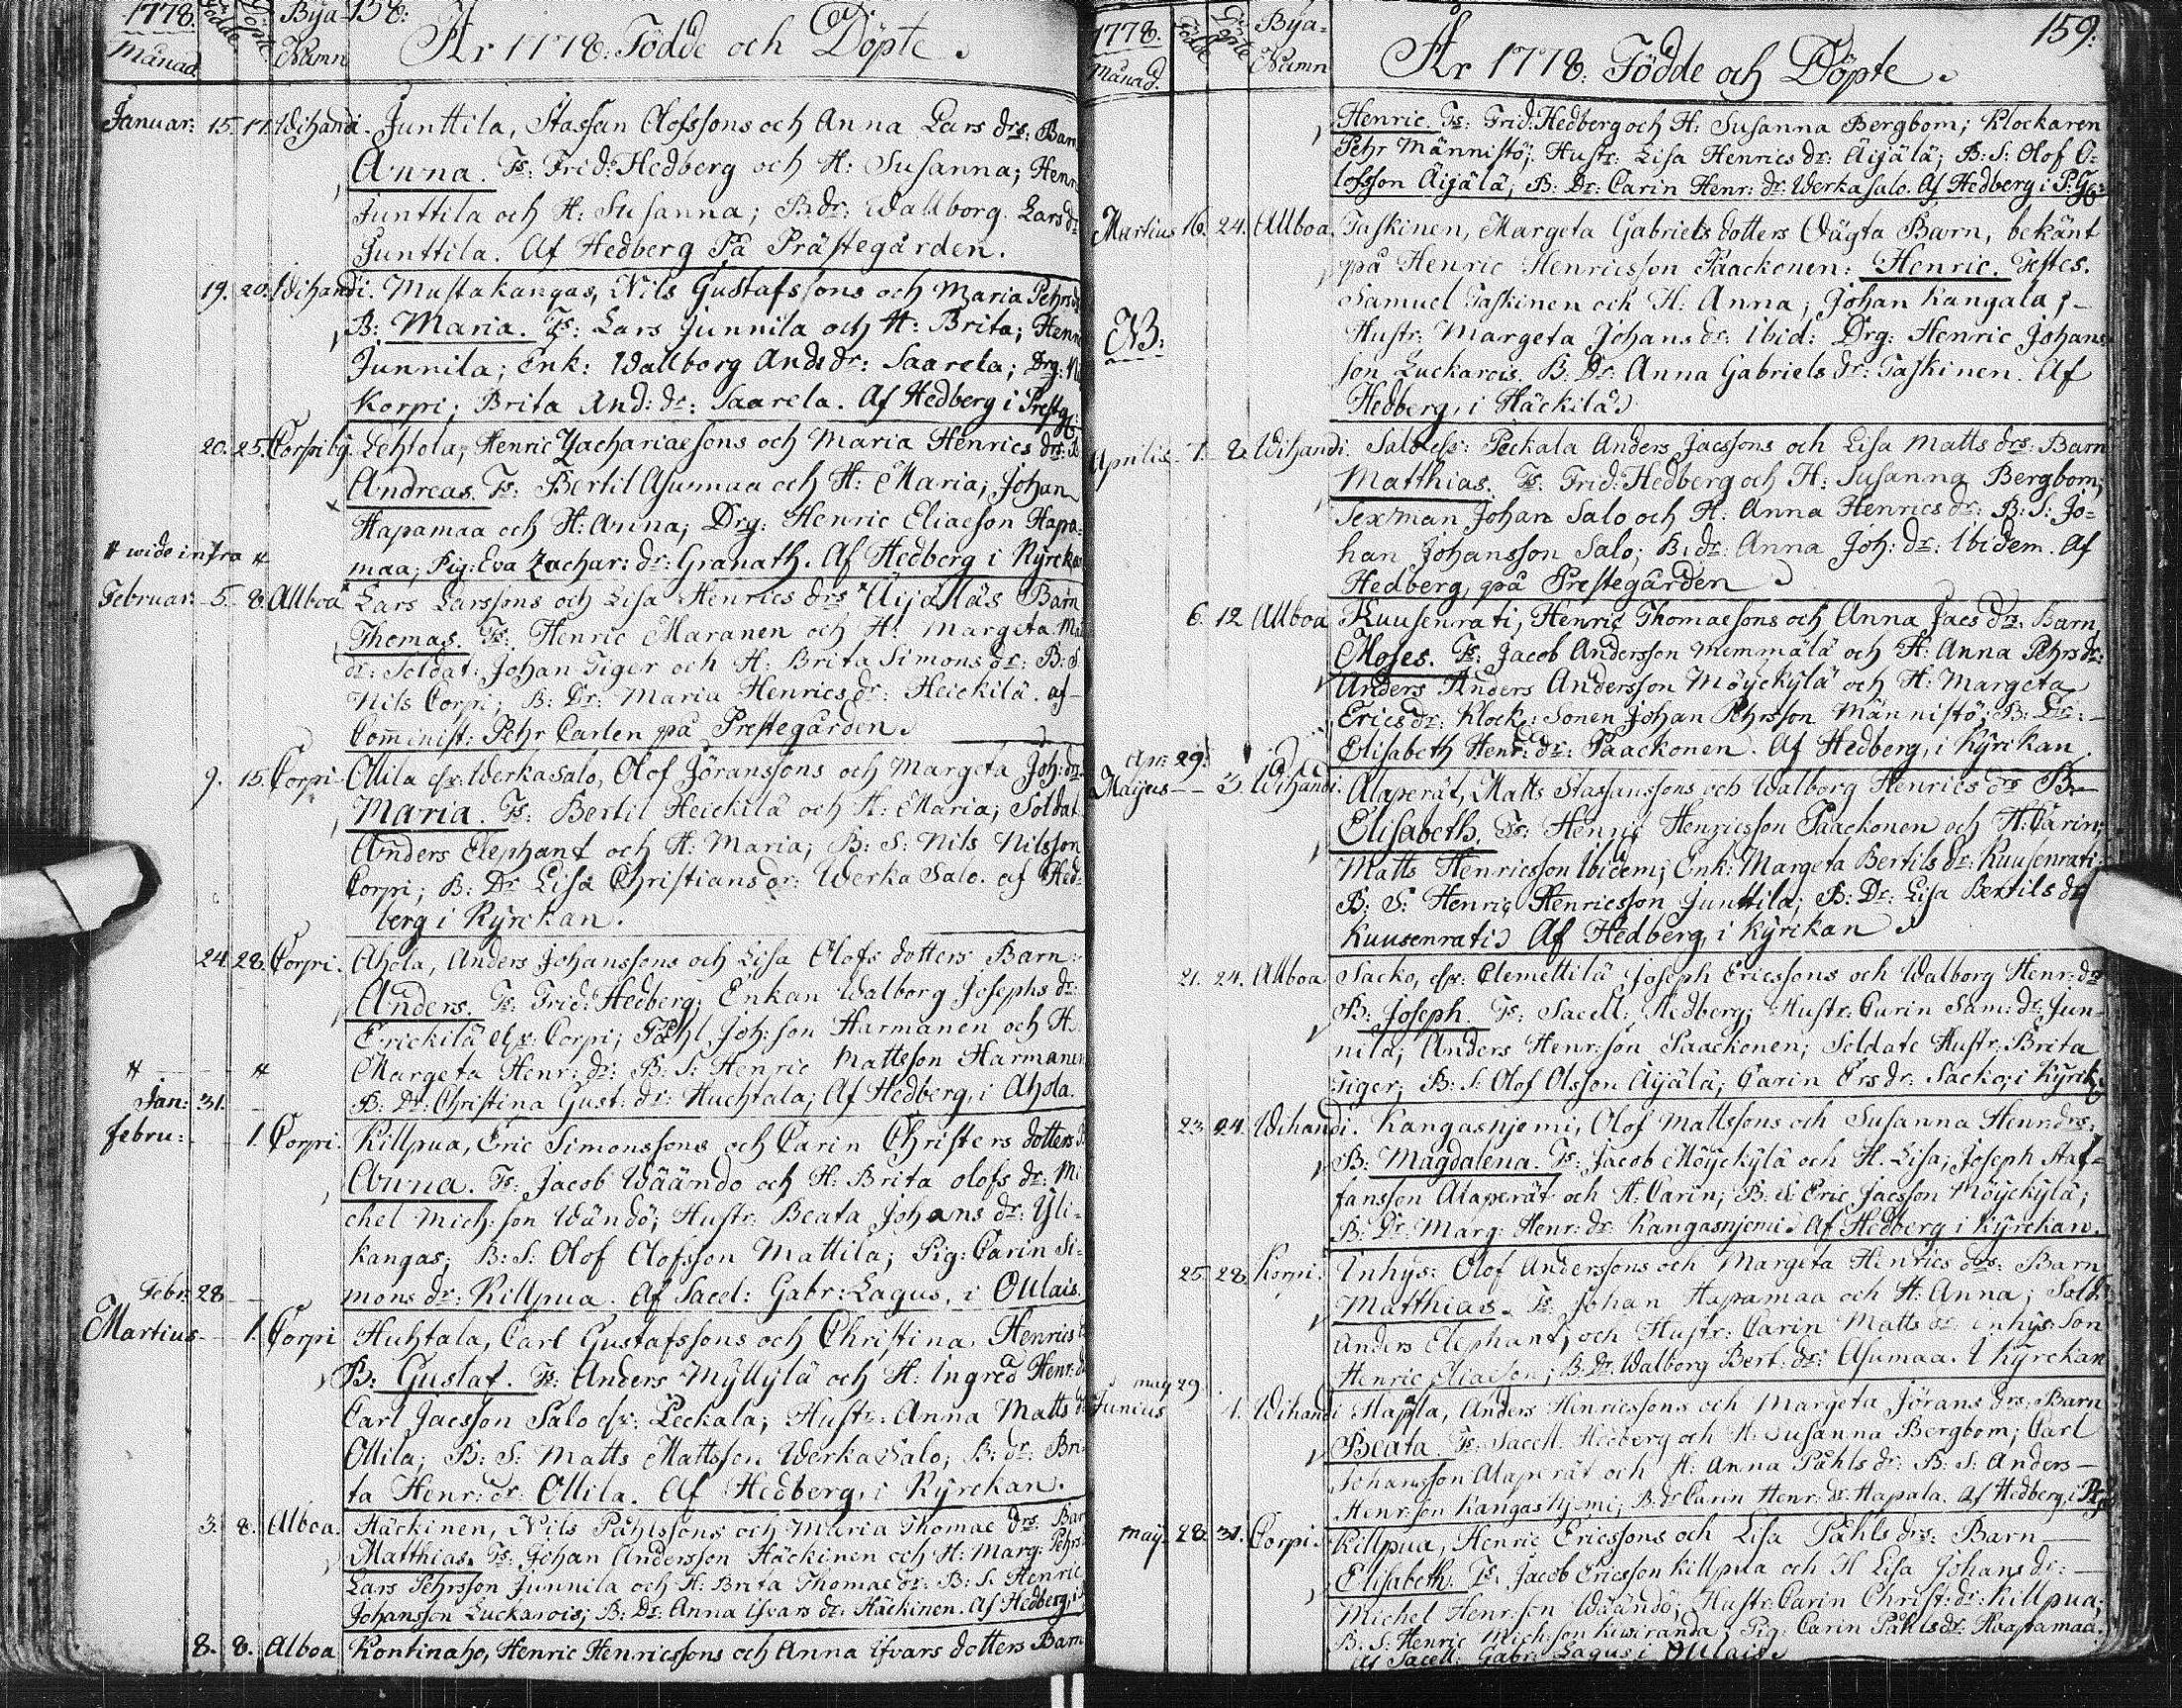 1778. Födde Döpte Bya- 158.
Månad. Namn
År 1778: Födde och Döpte.
Januar: 15. 17. Wihandi. Junttila, Staffan Olofssons och Anna Lars drs: Barn
Anna. Ts: Frid: Hedberg och H: Susanna; Henr:
Junttila och H: Susanna; B: dr: Wallborg Lars dr
Junttila. Af Hedberg På Prästegården.
19. 20. Wihandi. Mustakangas, Nils Gustafssons och Maria Pehrs
B: Maria. Ts: Lars Junnila och H: Brita; Henric
Junnila; Enk: Wallborg Ands dr: Saarela; Drg:
Korpi; Brita And: dr: Saarela. Af Hedberg i Prestg:
20. 25. Corpi by. Lehtola, Henric Zachariaesons och Maria Henrics drs:
Andreas. Ts: Bertil Asumaa och H: Maria; Johan
Hapamaa och H: Anna; Drg: Henric Eliaeson Hapa-
# vide infra # maa; Pig: Eva Zachar: dr: Granath. Af Hedberg i Kyrckan
Februar: 5. 8. Alboa Lars Larssons och Lisa Henrics drs Äijäläs Barn
Thomas. Ts: Henric Maranen och H: Margeta
dr: Soldat: Johan Tiger och H: Brita Simons dr: B: S
Nils Corpi; B: Dr: Maria Henrics dr: Heickilä. af
Cominist: Pehr Carlen på Prestegården.
9. 15. Corpi Ollila eller Werkasalo, Olof Jöranssons och Margeta Joh: drs
Maria. Ts: Bertil Heickilä och H: Maria; Soldat
Anders Elephant och H: Maria; B: S: Nils Nilsson
Corpi; B: Dr Lisa Christians dr: Werka Salo. af Hed-
berg i Kyrckan.
24. 28. Corpi. Ahola, Anders Johanssons och Lisa Olofs dotters Barn:
Anders. Ts: Frid: Hedberg; Enkan Walborg Josephs dr:
Erickilä Corpi; Påhl Joh: son Harmanen och H
# # Margeta Henr: dr: B: S: Henric Mattsson Harmanen
Jan: 31. B: Dr: Christina Gust: dr: Huchtala; Af Hedberg, i Ahola.
Febru: 1. Corpi. Killpua, Eric Simonssons och Carin Christers dotters
Anna. Ts: Jacob Wäändö och H: Brita Olofs dr: Mi-
chel Mich: son Wändö; Hustr: Beata Johans dr: Yli-
kangas; B: S: Olof Olofsson Mattila; Pig: Carin Si-
Febr: 28 mons dr: Killpua. Af Sacel: Gabr: Lagus, i Oulais.
Martius 1. Corpi Huhtala, Carl Gustafssons och Christina Henrics
B: Gustaf. Ts: Anders Myllylä och H: Ingred Henr: dr
Carl Jacsson Salo Peckala; Hustr: Anna Matts
Ollila; B: S: Matts Mattsson Werka Salo; B: dr: Bri-
ta Henr: dr: Ollila. Af Hedberg, i Kyrckan.
3. 8. Alboa. Häckinen, Nils Påhlssons och Maria Thomae drs. Bar
Matthias. Ts: Johan Andersson Häckinen och H: Marg: Pehrs
Lars Pehrsson Junnila och H: Brita Thomae dr: B: S: Henric
Johansson Luckarois; B: Dr: Anna Ifvars dr: Häckinen. Af Hedberg, i
8. 8. Alboa Kontinaho, Henric Henricssons och Anna Ifvars dotters Barn
1778. Födde Döpte Bya- 159.
Månad. Namn
År 1778. Födde och Döpte.
Henric. Ts: Frid: Hedberg och H: Susanna Bergbom; Klockaren
Pehr Männistö; Hustr: Lisa Henrics dr: Äijälä; B: S: Olof O-
lofsson Äijälä; B: Dr: Carin Henr: dr: Werkasalo. Af Hedberg i P: G:
Martius 16. 24. Alboa. Taskinen, Margeta Gabriels dotters Oägta Barn, bekänt
på Henric Henricsson Paackonen: Henric. Testes.
Samuel Taskinen och H: Anna; Johan Kangala;
NB: Hustr: Margeta Johans dr: Ibid: Drg: Henric Johans-
son Luckarois. B: Dr: Anna Gabriels dr: Taskinen. Af
Hedberg, i Häckilä.
Aprilis 7. 8. Wihandi. Salo Peckala Anders Jacssons och Lisa Matts drs: Barn
Matthias. Ts. Frid: Hedberg och H: Susanna Bergbom;
Sexman Johan Salo och H: Anna Henrics dr: B: S: Jo-
han Johansson Salo; B: dr: Anna Joh: dr: Ibidem. Af
Hedberg, på Prestegården
6. 12 Alboa Kuusenrati, Henric Thomaesons och Anna Jacs drs: Barn
Moses. Ts: Jacob Andersson Nimmälä och H: Anna Pehrs dr:
Anders Anders Andersson Möyckylä och H: Margeta
Erics dr: Klock: Sonen Johan Pehrsson Männistö; B: Dr:
Elisabeth Henr: dr: Paackonen. Af Hedberg, i Kyrkan.
Apr: 29.
Majus 3. Wihandi. Alaperät, Matts Staffanssons och Walborg Henrics drs B:
Elisabeth. Ts: Henric Henricsson Paackonen och H: Carin;
Matts Henricsson Ibidem; Enk: Margeta Bertils dr: Kuusenrati
B: S: Henric Henricsson Junttila; B: Dr: Lisa Bertils dr
Kuusenrati. Af Hedberg, i Kyrckan.
21. 24. Alboa Sacko, Clemettilä Joseph Ericssons och Walborg Henr: drs
B: Joseph. Ts: Sacell: Hedberg; Hustr: Carin Sam: dr: Jun-
nila; Anders Henr: son Paackonen; Soldate Hustr: Brita
Tiger; B: S: Olof Olsson Äijälä; Carin Ers dr: Sacko; i Kyrck
23. 24. Wihandi. Kangasnjemi, Olof Mattssons och Susanna Henr: drs.
B: Magdalena. Ts: Jacob Möyckylä och H. Lisa; Joseph Staf-
fansson Alaperät och H: Carin; B: S: Eric Jacsson Möyckylä;
B: Dr: Marg: Henr: dr: Kangasnjemi. Af Hedberg i Kyrckan.
25. 28. Korpi. Inhys: Olof Anderssons och Margeta Henrics drs: Barn
Matthias. Ts: Johan Hapamaa och H: Anna; Sold:
Anders Elephant, och Hustr: Carin Matts dr: inhys: Son
Henric Eliaeson; B: Dr: Walborg Bert: dr: Asumaa. I Kyrckan
may 29.
Junius 1. Wihandi Hapala, Anders Henricssons och Margeta Jörans drs: Barn
Beata. Ts: Sacell. Hedberg och H: Susanna Bergbom; Carl
Johansson Alaperät och H: Anna Påhls dr: B: S: Anders
Henr: son Kangasnjemi; B: dr Carin Henr: dr: Hapala. Af Hedberg, i
may 28. 31. Corpi. Killpua, Henric Ericssons och Lisa Påhls drs: Barn
Elisabeth: Ts: Jacob Ericsson Killpua och H Lisa Johans dr:
Michel Henr: son Wäändö; Hustr: Carin Christ: dr: Killpua;
B. S: Henric Mich: son Kiwiranda; Pig: Carin Påhls dr: Haapamaa.
Af Sacell: Gabr: Lagus i Oulais.